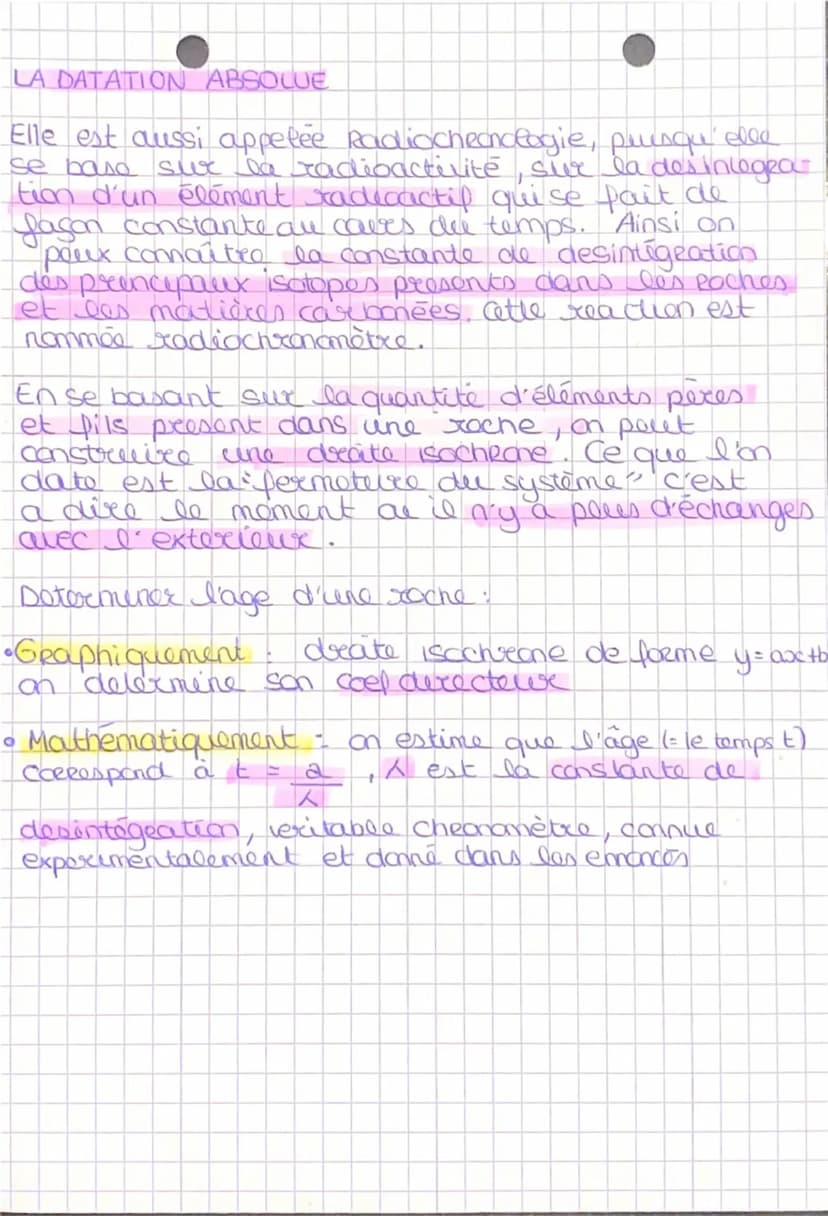 LA DATATION ABSOLUE
Elle est aussi appelée Radiochronologie, puisqu'elle
se base sur la radioactivité, sur la desintegra-
tion d'un élément radioactif qui se fait de
façon constante au cours du temps. Ainsi on
peux connaître la constante de desintégration
des principaux isotopes presents dans les roches
et les matières carbonées. Cette reaction est
nommée radiochronomètre.
En se basant sur la quantité d'éléments pères
et fils present dans une roche, on peut
construire une droite isochrone. Ce que l'on
date est la "fermeture du système" c'est
a dire le moment ou il n'y a plus d'échanges
avec l'exterieur.
Determiner l'age d'une roche :
• Graphiquement : droite isochrone de forme y=ax+b
on determine son coef directeur
• Mathématiquement : on estime que l'âge (= le temps t)
correspond à t = a/λ, λ est la constante de
desintégration, veritable chronomètre, connue
experimentalement et donné dans les enoncés